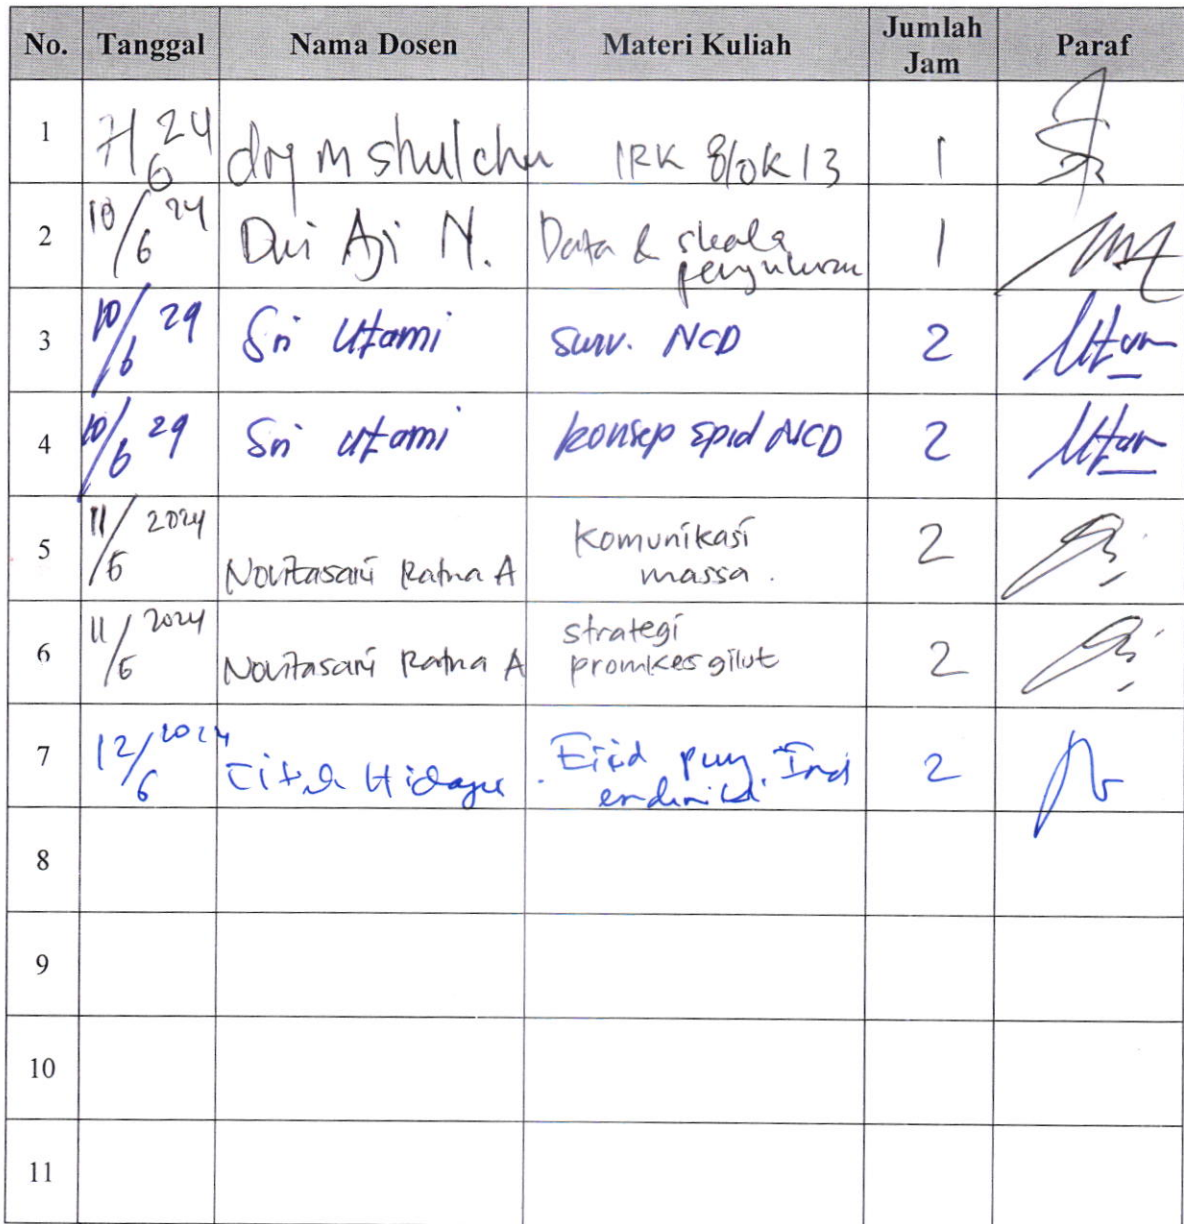 No. Tanggal Nama Dosen Materi Kuliah Jumlah Jam Paraf
1 7/6 24 drg m shulchu IRK Blok 13 1
2 10/6 24 Dwi Aji N. Data & skala pengukuran 1
3 10/6 24 Sri Utami surv. NCD 2
4 10/6 24 Sri Utami konsep epid NCD 2
5 11/6 2024 Novitasari Ratna A Komunikasi massa. 2
6 11/6 2024 Novitasari Ratna A strategi promkes gilut 2
7 12/6 2024 Hidayu 2
8
9
10
11